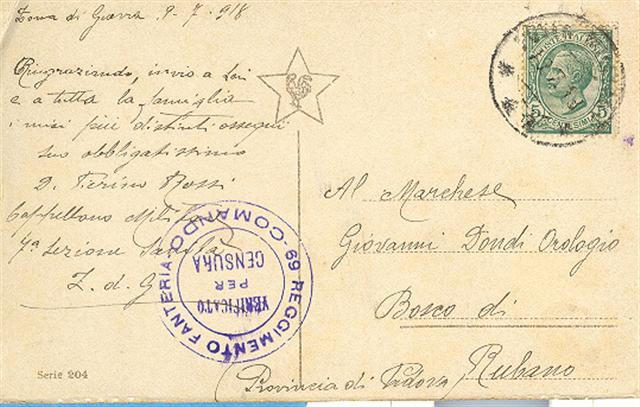 Zona di Guerra 9-7-918
Ringraziando, invio a Lei
e a tutta la famiglia
i miei più distinti ossequi
suo obbligatissimo
D. Rossi
Cappellano
7a Sezione Sanità
Z. d. G
Al Marchese
Giovanni Dondi Orologio
Bosco di
Rubano
Provincia di Padova
69 REGGIMENTO FANTERIA - COMANDO
VERIFICATO
PER
CENSURA
5 5
CENTESIMI
Serie 204